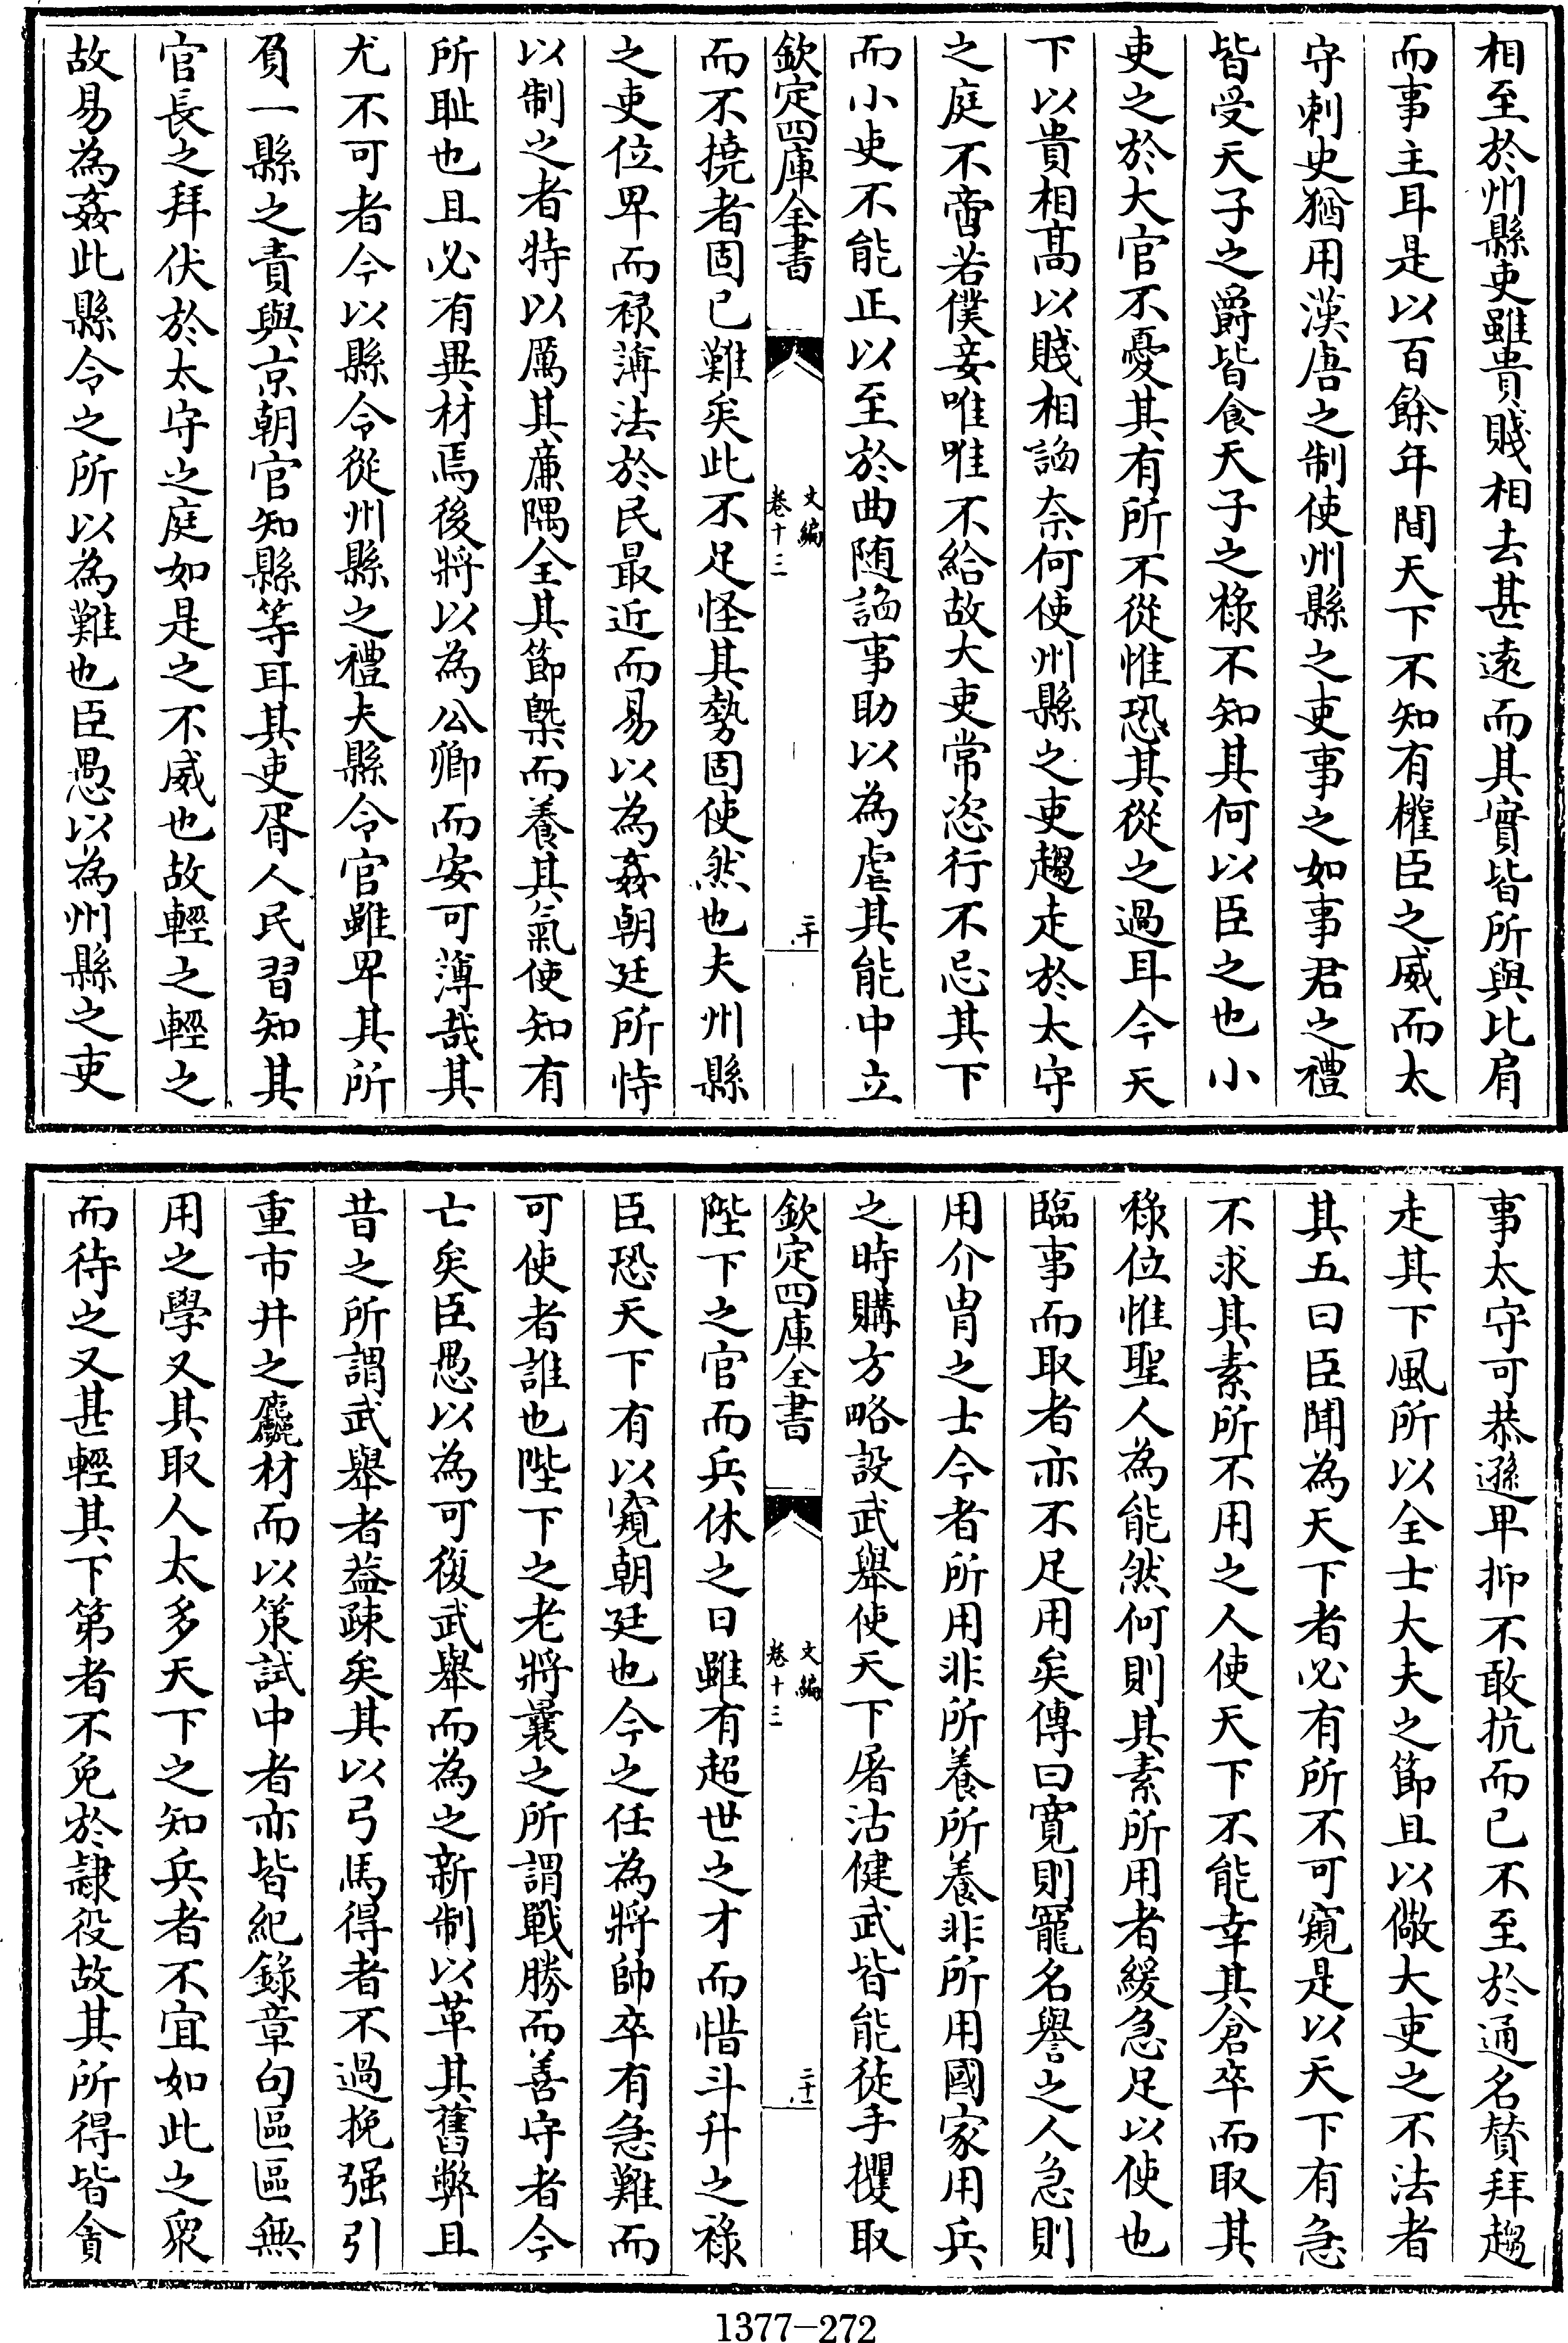 相至於州縣吏雖貴賤相去甚遠而其實皆所與比肩
而事主耳是以百餘年間天下不知有權臣之威而太
守刺史猶用漢唐之制使州縣之吏事之如事君之禮
皆受天子之爵皆食天子之祿不知其何以臣之也小
吏之於大官不憂其有所不從惟恐其從之過耳今天
下以貴相髙以賤相諂奈何使州縣之吏趨走於太守
之庭不啻若僕妾唯唯不給故大吏常恣行不忌其下
而小吏不能正以至於曲随諂事助以為虐其能中立
欽定四庫全書
文編
卷十三
二十
而不撓者固已難矣此不足怪其勢固使然也夫州縣
之吏位卑而禄薄法於民最近而易以為姦朝廷所恃
以制之者特以厲其廉隅全其節槩而養其氣使知有
所耻也且必有異材焉後將以為公卿而安可薄哉其
尤不可者今以縣令從州縣之禮夫縣令官雖卑其所
負一縣之責與京朝官知縣等耳其吏胥人民習知其
官長之拜伏於太守之庭如是之不威也故輕之輕之
故易為姦此縣令之所以為難也臣愚以為州縣之吏
事太守可恭遜卑抑不敢抗而已不至於通名贊拜趨
走其下風所以全士大夫之節且以儆大吏之不法者
其五曰臣聞為天下者必有所不可窺是以天下有急
不求其素所不用之人使天下不能幸其倉卒而取其
祿位惟聖人為能然何則其素所用者緩急足以使也
臨事而取者亦不足用矣傳曰寛則寵名譽之人急則
用介胄之士今者所用非所養所養非所用國家用兵
之時購方略設武舉使天下屠沽健武皆能徒手攫取
欽定四庫全書
文編
卷十三
二十一
陛下之官而兵休之日雖有超世之才而惜斗升之祿
臣恐天下有以窺朝廷也今之任為將帥卒有急難而
可使者誰也陛下之老將曩之所謂戰勝而善守者今
亡矣臣愚以為可復武舉而為之新制以革其舊弊且
昔之所謂武舉者益疎矣其以弓馬得者不過挽强引
重市井之麤材而以策試中者亦皆紀錄章句區區無
用之學又其取人太多天下之知兵者不宜如此之衆
而待之又甚輕其下第者不免於隷役故其所得皆貪
1377-272